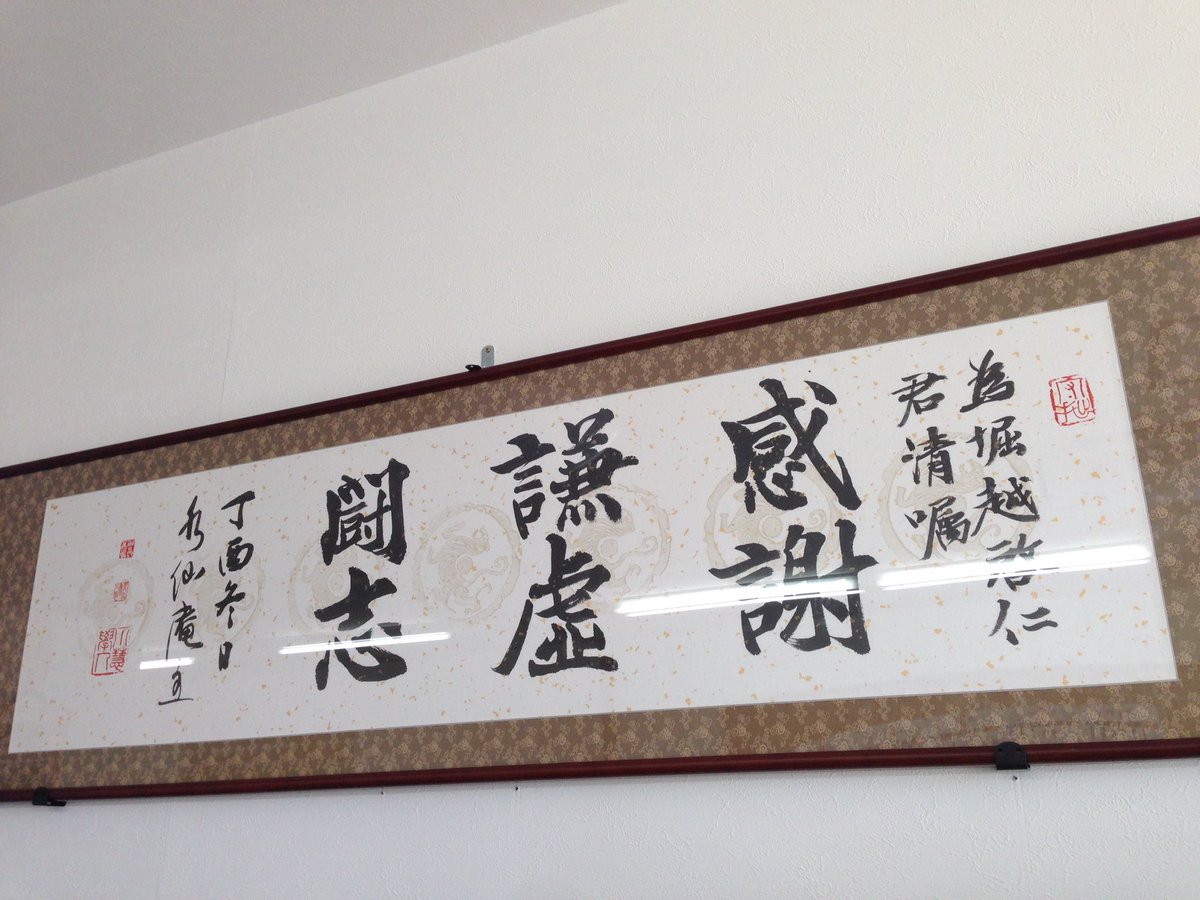 為堀越啓仁
君清嘱
感謝
謙虚
闘志
丁酉冬日
秀仙庵主